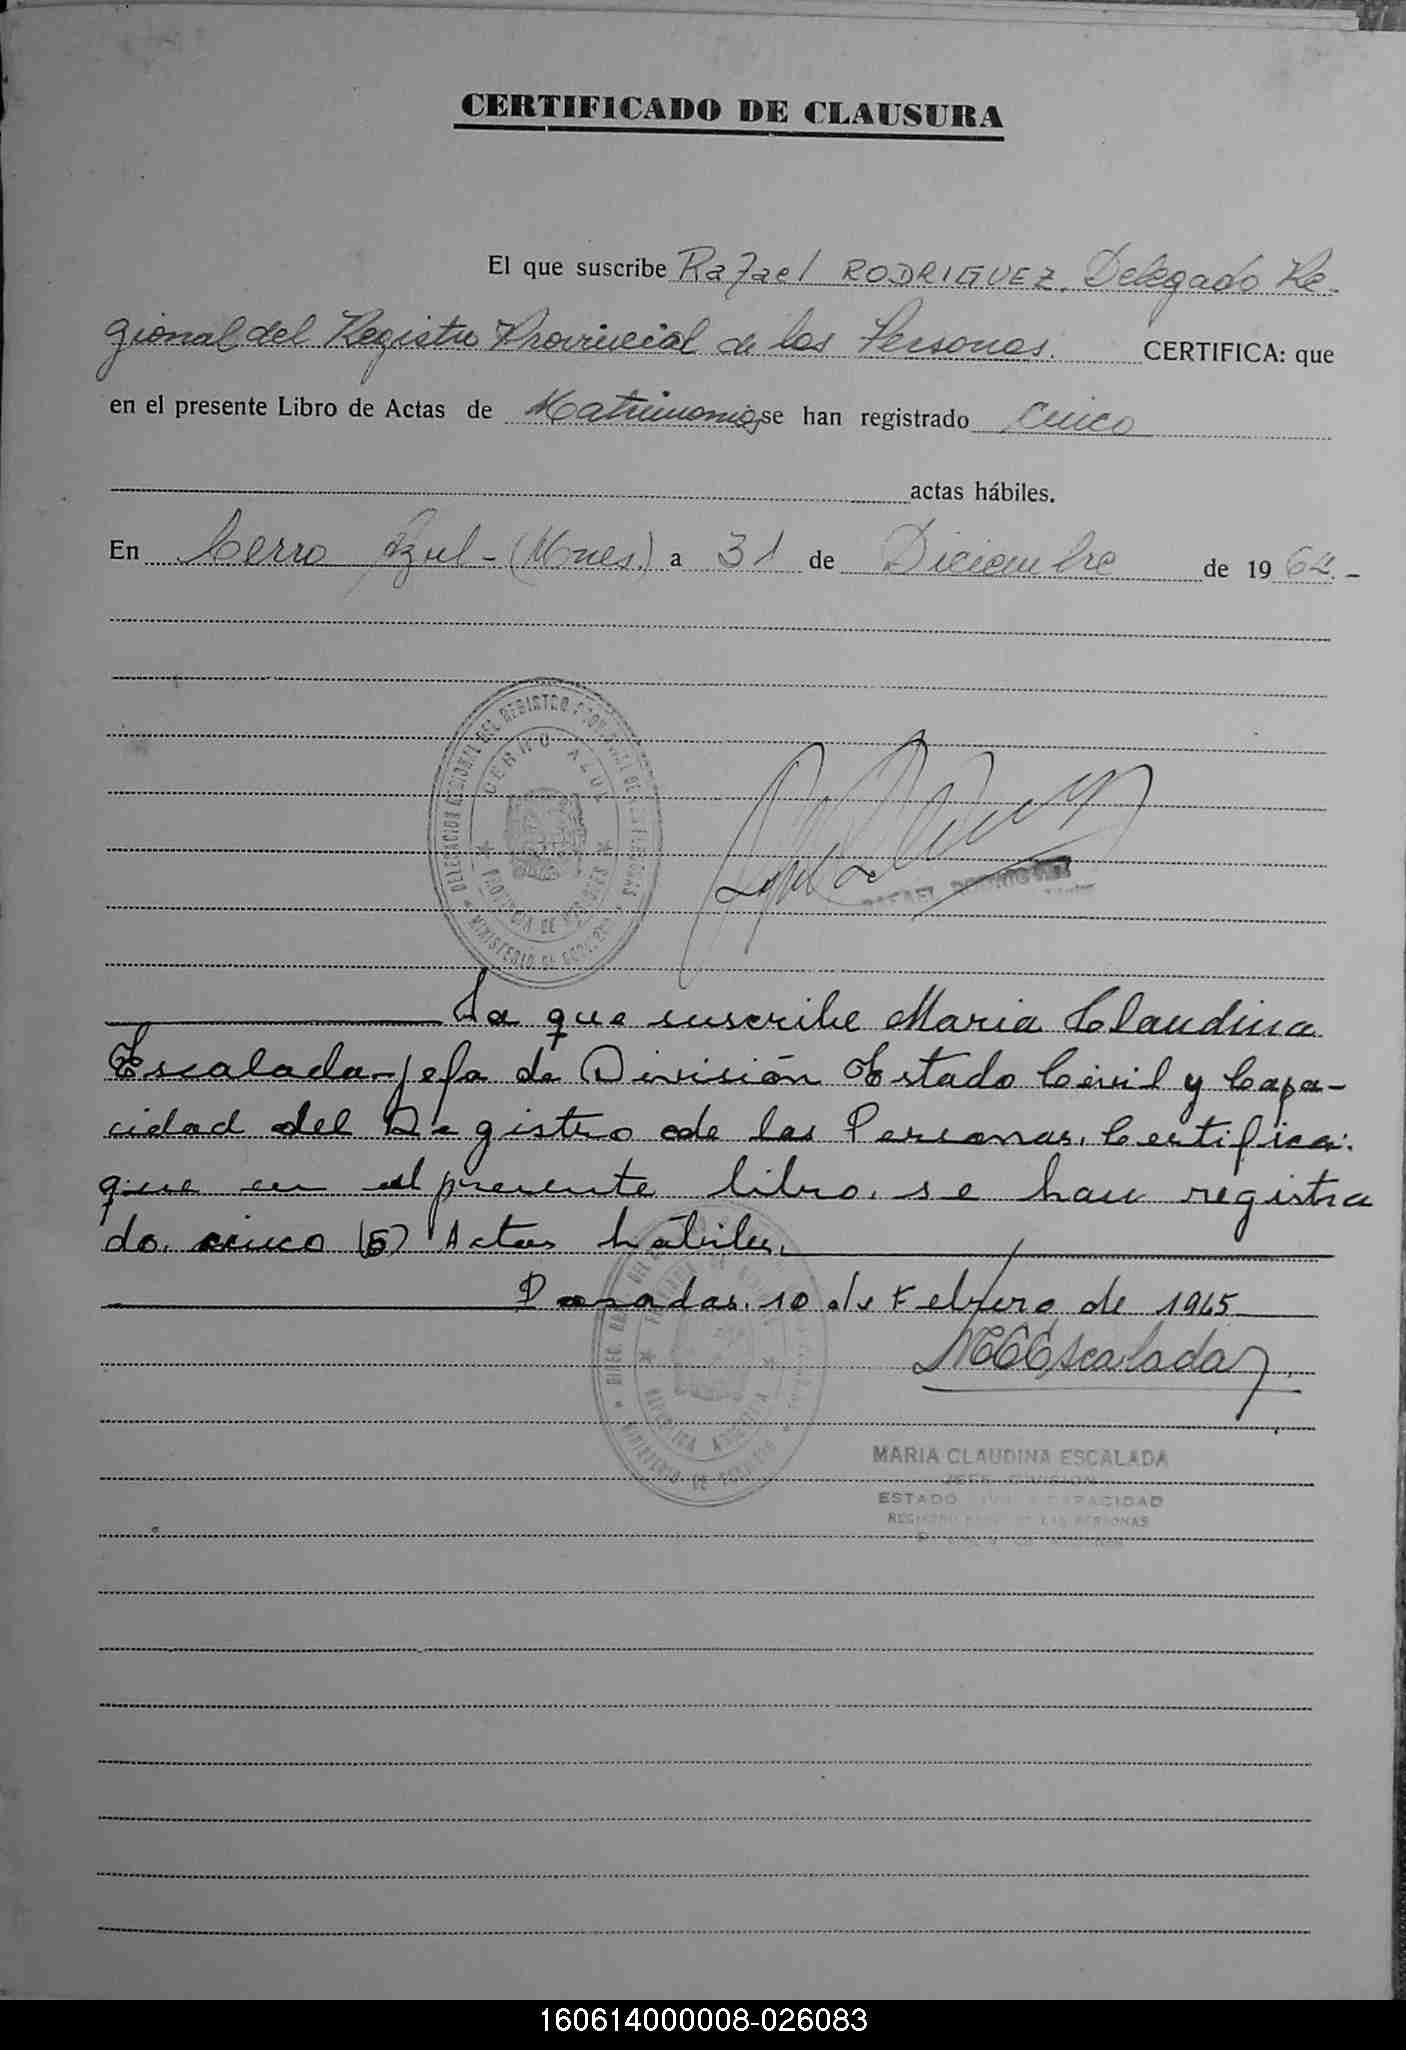 CERTIFICADO DE CLAUSURA
El que suscribe Rafael RODRIGUEZ. Delegado Re-
gional del Registro Provincial de las Personas. CERTIFICA: que
en el presente Libro de Actas de Matrimonios se han registrado cinco
actas hábiles.
En Cerro Azul - (Mnes.) a 31 de Diciembre de 1964.-
DELEGACION REGIONAL DEL REGISTRO PROVINCIAL DE LAS PERSONAS
CERRO AZUL
PROVINCIA DE MISIONES
MINISTERIO DE
RAFAEL RODRIGUEZ
La que suscribe Maria Claudina
Escalada-jefa de División Estado Civil y Capa-
cidad del Registro de las Personas. Certifica:
que en el presente libro, se han registra
do. cinco (5) Actas hábiles.
Posadas. 10 de Febrero de 1965
MCEscalada
REPUBLICA ARGENTINA
MINISTERIO DE GOBIERNO
MARIA CLAUDINA ESCALADA
JEFE DIVISION
ESTADO CIVIL Y CAPACIDAD
REGISTRO PROV. DE LAS PERSONAS
160614000008-026083